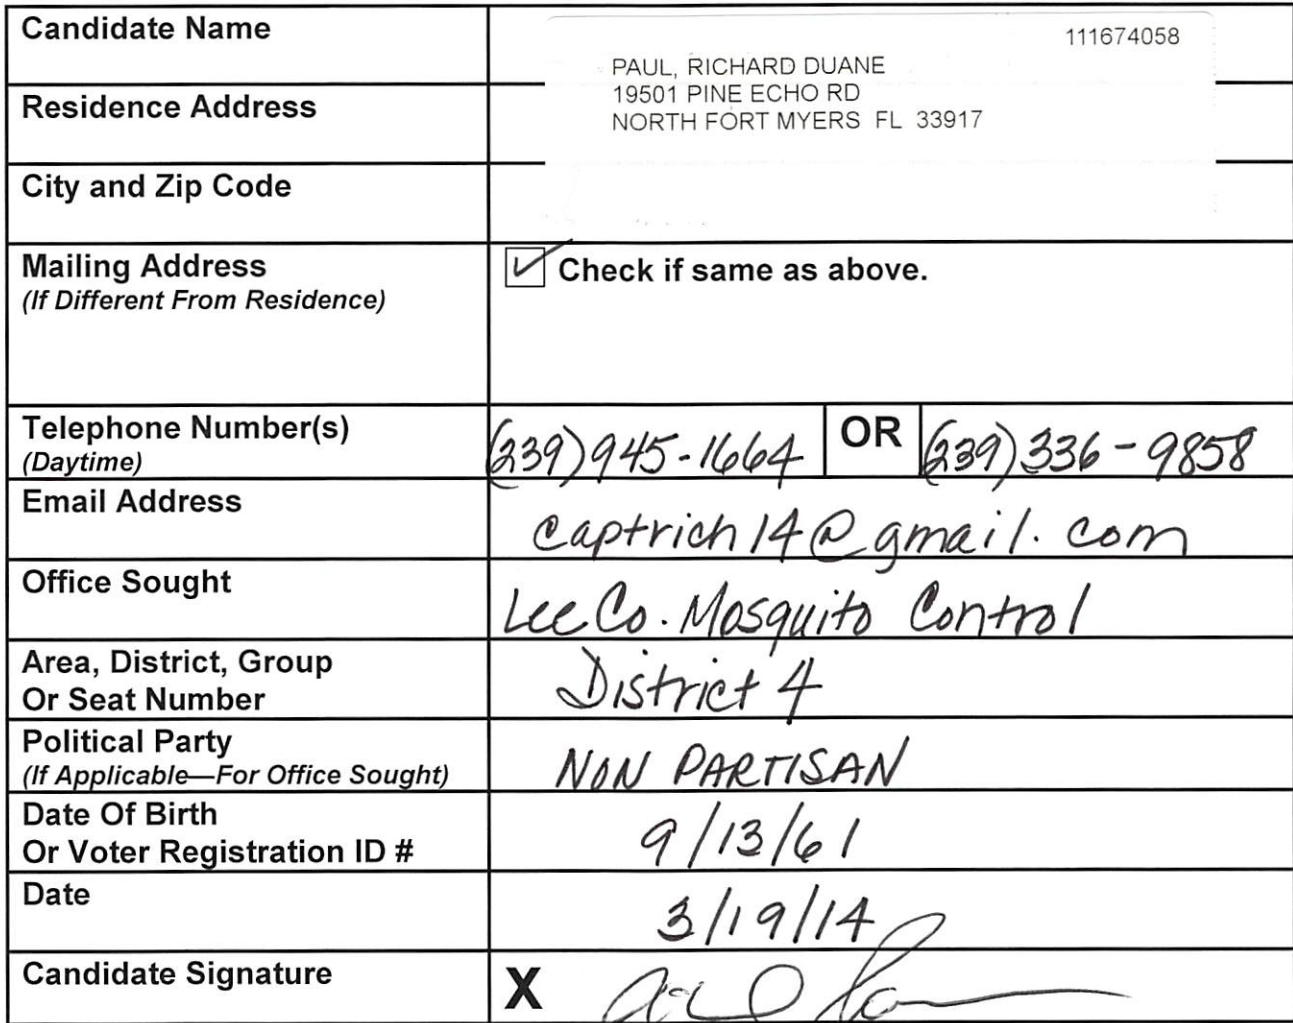 Candidate Name
111674058
PAUL, RICHARD DUANE
Residence Address
19501 PINE ECHO RD
NORTH FORT MYERS FL 33917
City and Zip Code
Mailing Address
(If Different From Residence)
Check if same as above.
Telephone Number(s)
(Daytime)
(239) 945-1664 OR (239) 336-9858
Email Address
captrich14@gmail.com
Office Sought
Lee Co. Mosquito Control
Area, District, Group
Or Seat Number
District 4
Political Party
(If Applicable—For Office Sought)
NON PARTISAN
Date Of Birth
Or Voter Registration ID #
9/13/61
Date
3/19/14
Candidate Signature
X